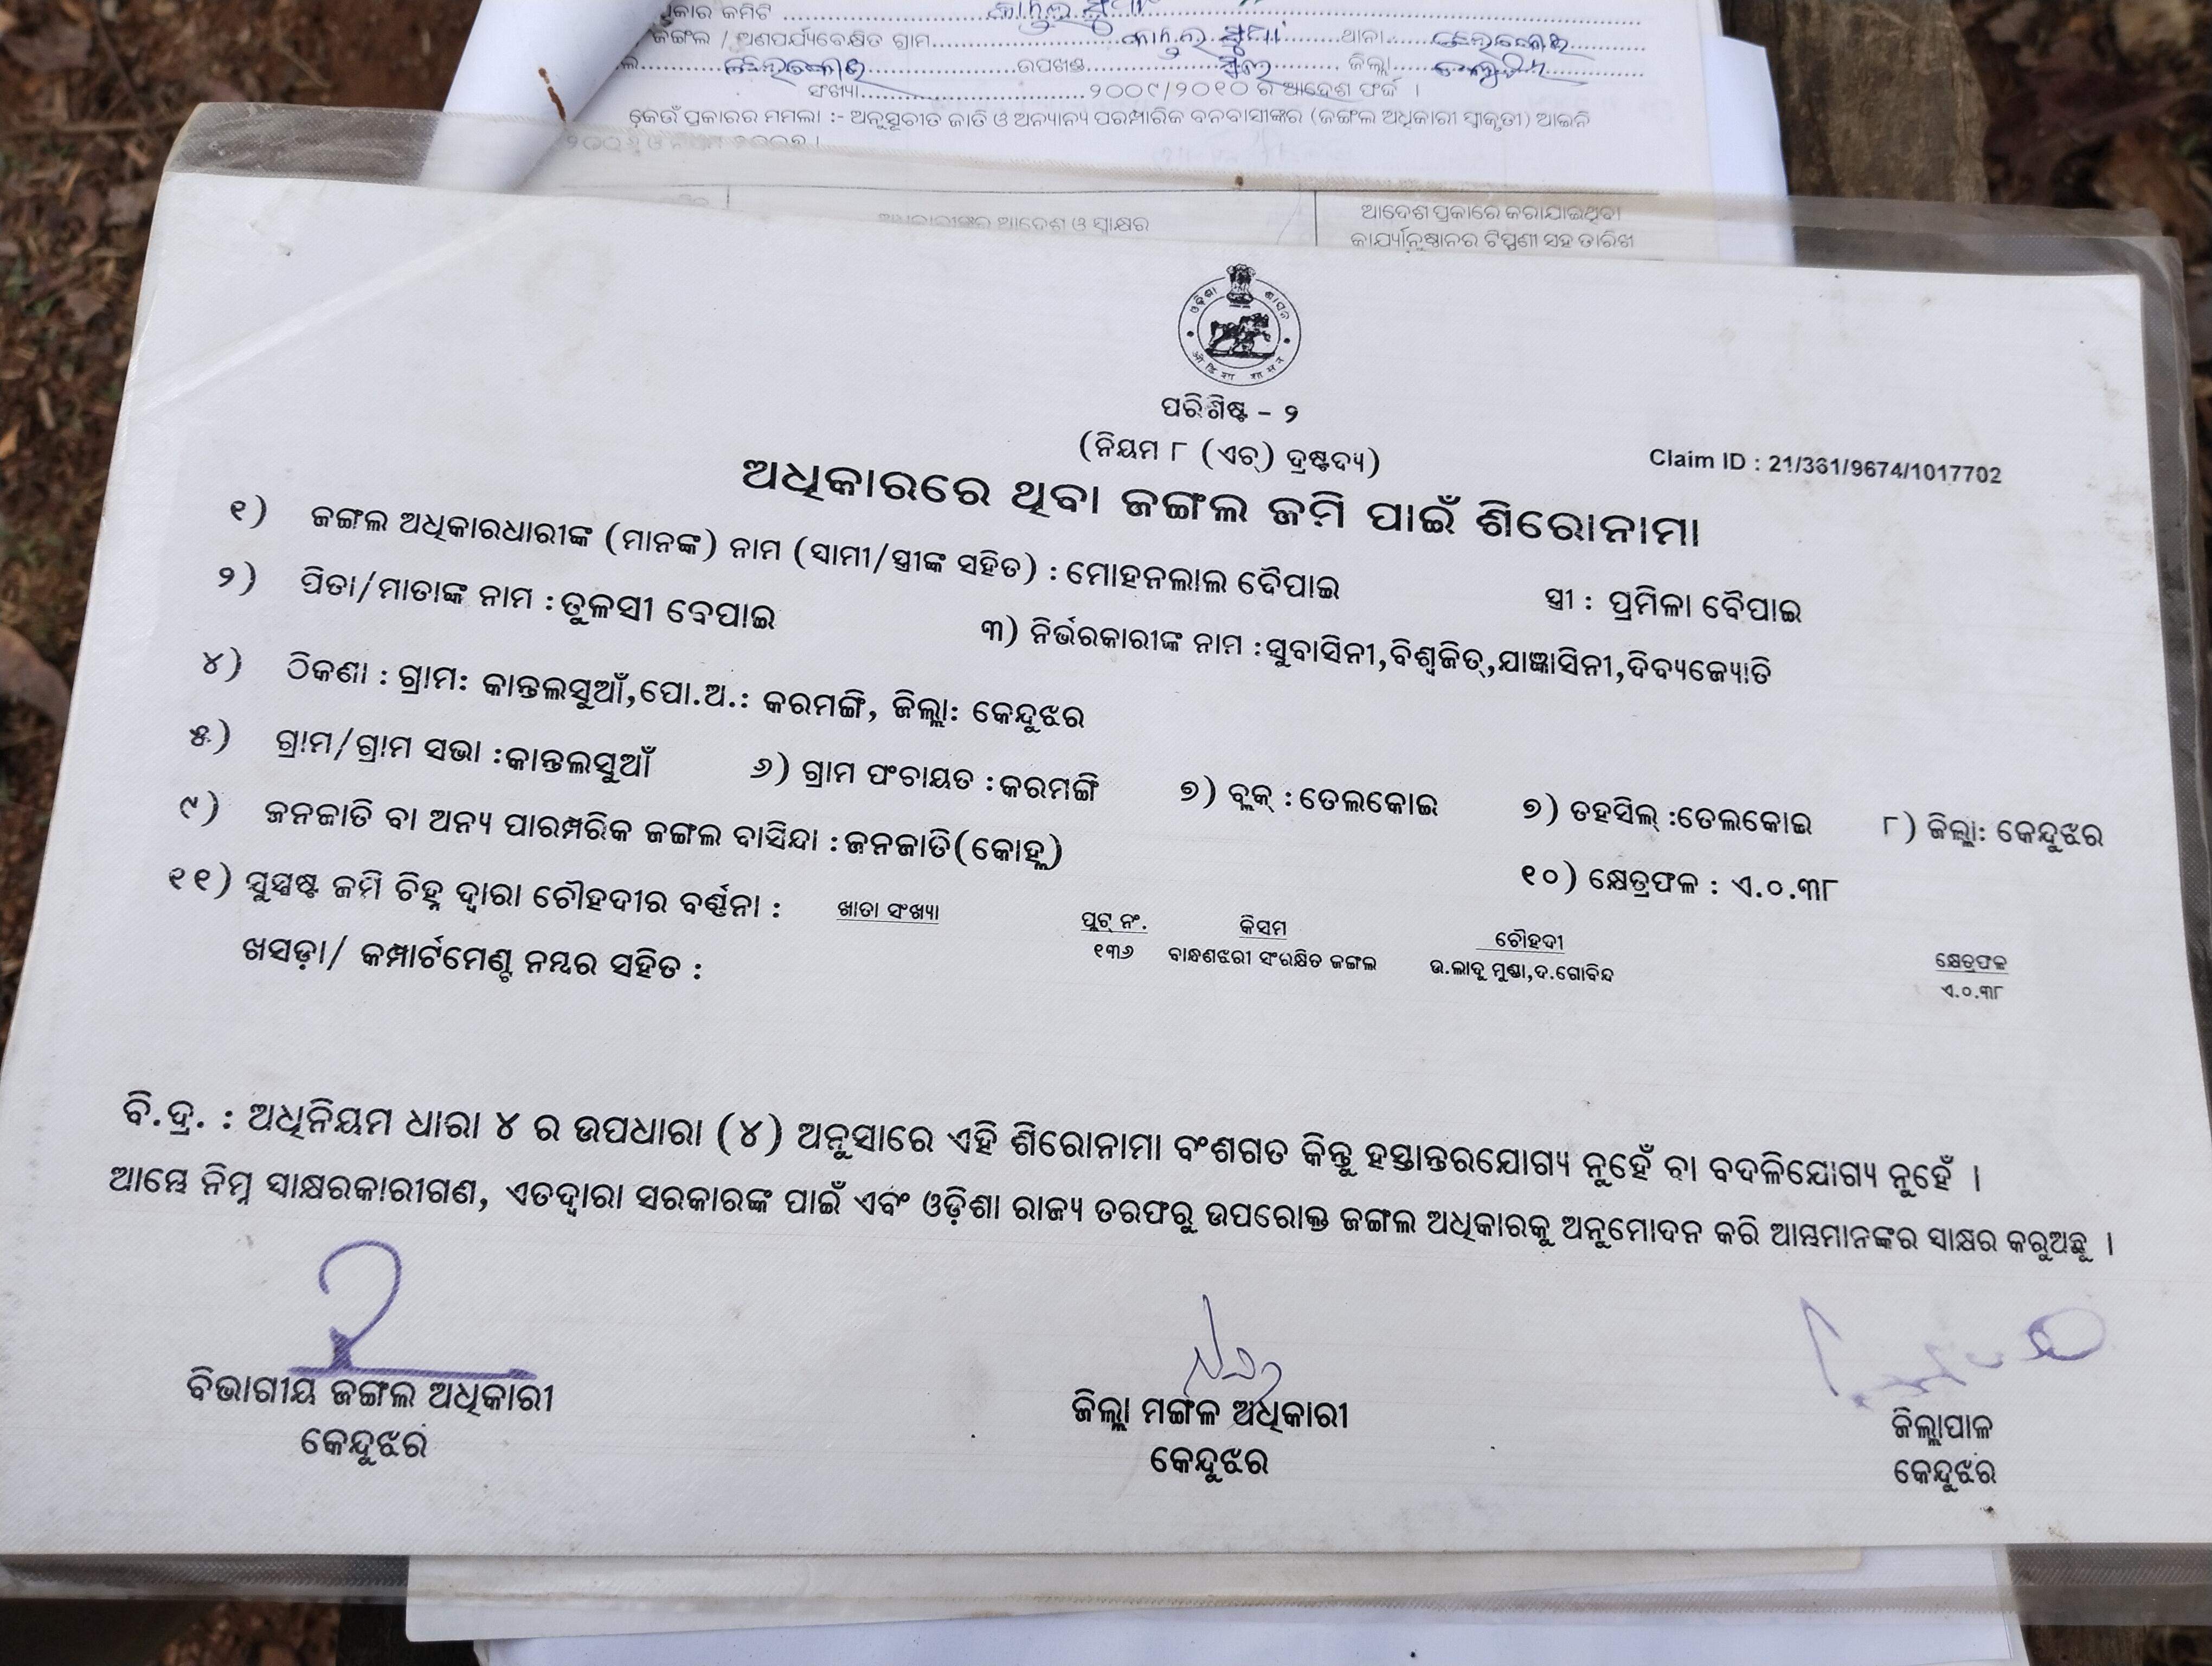 ଧିକାର କମିଟି
ଜଙ୍ଗଲ / ଅଣପର୍ଯ୍ୟବେକ୍ଷିତ ଗ୍ରାମ ଥାନା
ଉପଖଣ୍ଡ ଜିଲ୍ଲା
ସଂଖ୍ୟା ୨୦୦୯/୨୦୧୦ ର ଆଦେଶ ଫର୍ଦ୍ଦ ।
କେଉଁ ପ୍ରକାରର ମମଲା :- ଅନୁସୂଚୀତ ଜାତି ଓ ଅନ୍ୟାନ୍ୟ ପରମ୍ପାରିକ ବନବାସୀଙ୍କର (ଜଙ୍ଗଲ ଅଧିକାରୀ ସ୍ୱୀକୃତୀ) ଆଇନି
ଆଦେଶ ଓ ସ୍ୱାକ୍ଷର
ଆଦେଶ ପ୍ରକାରେ କରାଯାଇଥିବା
କାର୍ଯ୍ୟାନୁଷ୍ଠାନର ଟିପ୍ପଣୀ ସହ ତାରିଖ
ଓଡ଼ିଶା ଶାସନ
ओडिशा शासन
ପରିଶିଷ୍ଟ - ୨
(ନିୟମ ୮ (ଏଚ୍) ଦ୍ରଷ୍ଟଦ୍ୟ)
Claim ID : 21/361/9674/1017702
ଅଧିକାରରେ ଥିବା ଜଙ୍ଗଲ ଜମି ପାଇଁ ଶିରୋନାମା
୧) ଜଙ୍ଗଲ ଅଧିକାରଧାରୀଙ୍କ (ମାନଙ୍କ) ନାମ (ସ୍ୱାମୀ/ସ୍ତ୍ରୀଙ୍କ ସହିତ) : ମୋହନଲାଲ ଦୈପାଇ ସ୍ତ୍ରୀ : ପ୍ରମିଳା ବୈପାଇ
୨) ପିତା/ମାତାଙ୍କ ନାମ : ତୁଳସୀ ବେପାଇ ୩) ନିର୍ଭରକାରୀଙ୍କ ନାମ : ସୁବାସିନୀ,ବିଶ୍ୱଜିତ୍,ଯାଜ୍ଞାସିନୀ,ଦିବ୍ୟଜ୍ୟୋତି
୪) ଠିକଣା : ଗ୍ରାମ: କାନ୍ତଲସୁଆଁ,ପୋ.ଅ.: କରମଙ୍ଗି, ଜିଲ୍ଲା: କେନ୍ଦୁଝର
୫) ଗ୍ରାମ/ଗ୍ରାମ ସଭା :କାନ୍ତଲସୁଆଁ ୬) ଗ୍ରାମ ପଂଚାୟତ : କରମଙ୍ଗି ୭) ବ୍ଲକ୍ : ତେଲକୋଇ ୭) ତହସିଲ୍ :ତେଲକୋଇ ୮) ଜିଲ୍ଲା: କେନ୍ଦୁଝର
୯) ଜନଜାତି ବା ଅନ୍ୟ ପାରମ୍ପରିକ ଜଙ୍ଗଲ ବାସିନ୍ଦା : ଜନଜାତି(କୋହ୍ଲ) ୧୦) କ୍ଷେତ୍ରଫଳ : ଏ.୦.୩୮
୧୧) ସୁସ୍ପଷ୍ଟ ଜମି ଚିହ୍ନ ଦ୍ୱାରା ଚୌହଦୀର ବର୍ଣ୍ଣନା : ଖାତା ସଂଖ୍ୟା ପ୍ଲଟ୍ ନଂ. କିସମ ଚୌହଦୀ କ୍ଷେତ୍ରଫଳ
ଖସଡ଼ା/ କମ୍ପାର୍ଟମେଣ୍ଟ ନମ୍ବର ସହିତ : ୧୩୬ ବାନ୍ଧଣଝରୀ ସଂରକ୍ଷିତ ଜଙ୍ଗଲ ଉ.ଲାଦୁ ମୁଣ୍ଡା,ଦ.ଗୋବିନ୍ଦ ଏ.୦.୩୮
ବି.ଦ୍ର. : ଅଧିନିୟମ ଧାରା ୪ ର ଉପଧାରା (୪) ଅନୁସାରେ ଏହି ଶିରୋନାମା ବଂଶଗତ କିନ୍ତୁ ହସ୍ତାନ୍ତରଯୋଗ୍ୟ ନୁହେଁ ବା ବଦଳିଯୋଗ୍ୟ ନୁହେଁ ।
ଆମ୍ଭେ ନିମ୍ନ ସ୍ୱାକ୍ଷରକାରୀଗଣ, ଏତଦ୍ୱାରା ସରକାରଙ୍କ ପାଇଁ ଏବଂ ଓଡ଼ିଶା ରାଜ୍ୟ ତରଫରୁ ଉପରୋକ୍ତ ଜଙ୍ଗଲ ଅଧିକାରକୁ ଅନୁମୋଦନ କରି ଆମ୍ଭମାନଙ୍କର ସ୍ୱାକ୍ଷର କରୁଅଛୁ ।
ବିଭାଗୀୟ ଜଙ୍ଗଲ ଅଧିକାରୀ ଜିଲ୍ଲା ମଙ୍ଗଳ ଅଧିକାରୀ ଜିଲ୍ଲାପାଳ
କେନ୍ଦୁଝର କେନ୍ଦୁଝର କେନ୍ଦୁଝର